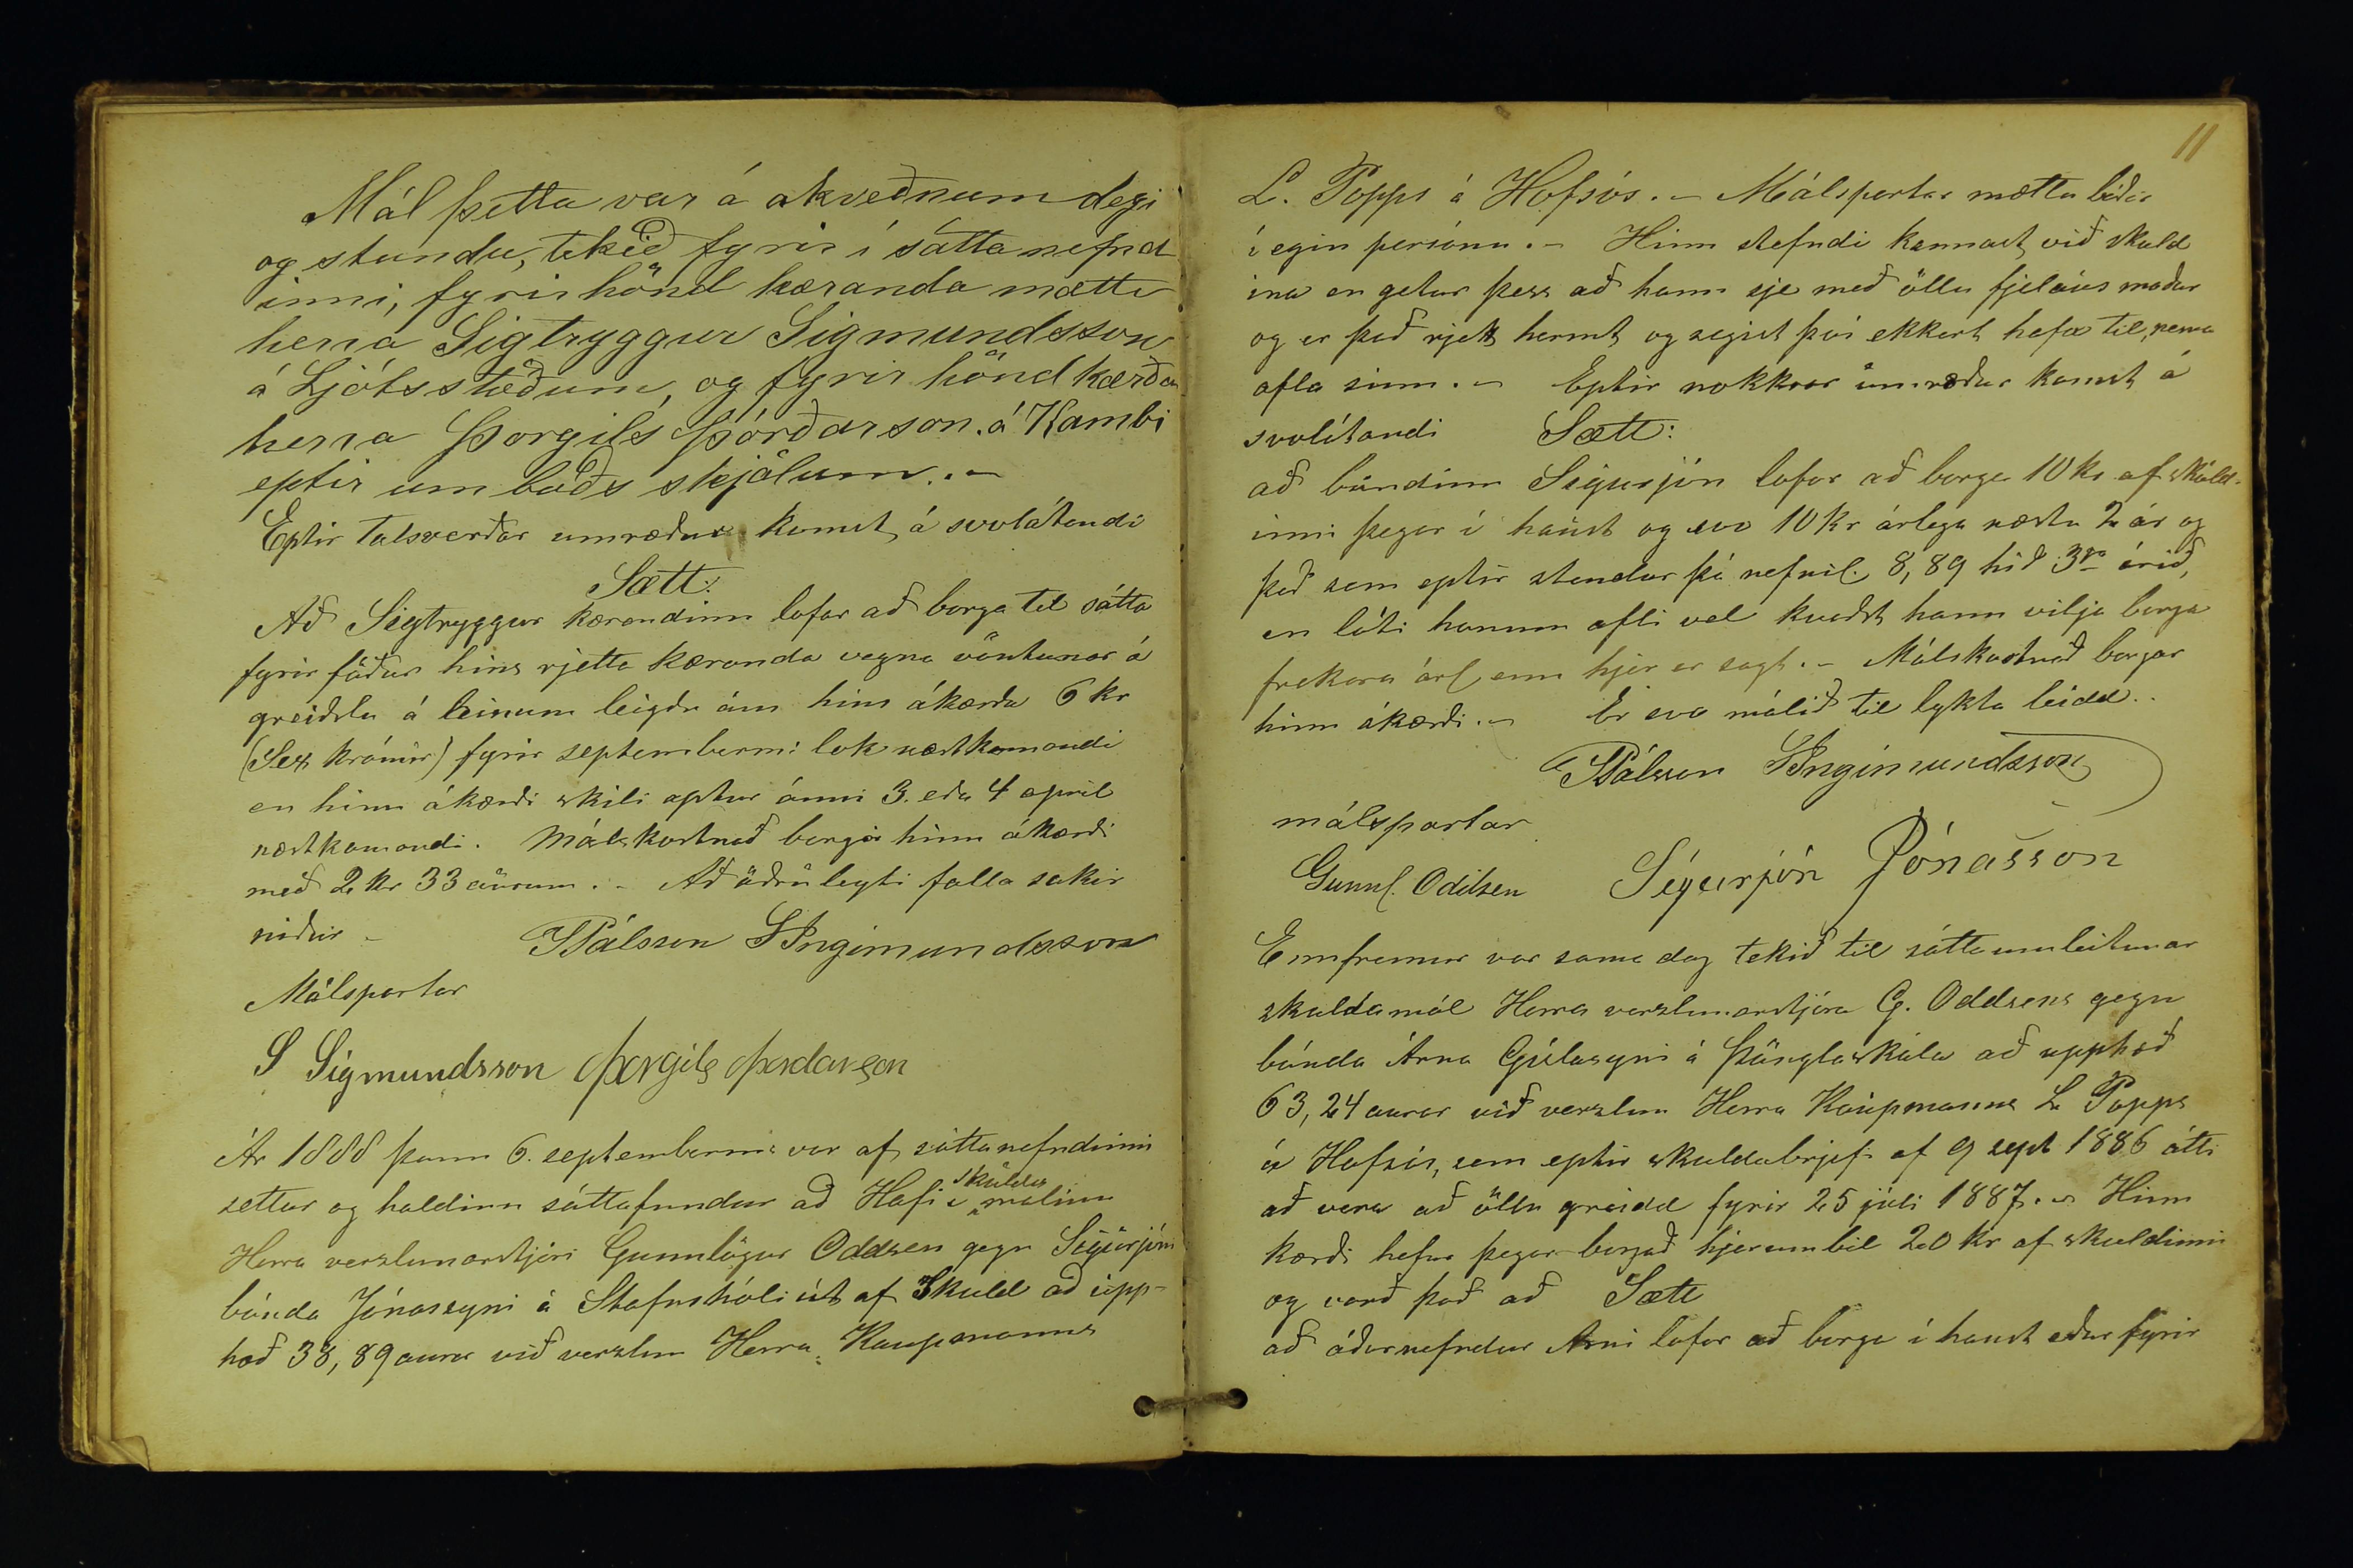 Mál þetta var á akveðnum degi
og stundu, tekið fyrir í sáttanefnd
inni, fyrir hönd kæranda mætti
herra Sigtryggur Sigmundsson
á Ljótsstöðum, og fyrir hönd kærða
herra Þorgils Þórðarson á Kambi
eptir umboðs skjölum. -
Eptir talsverðar umræður komst á svolátandi
Sætt:
Að Sigtryggur kærandinn lofar að borga til sátta
fyrir föður hins rjetta kæranda vegna vöntunar á
greiðslu á leinum leigðu ám hins ákærða 6 kr
(Sex krónur) fyrir septemberm: lok næstkomandi
en hinn ákærði skili aptur ánni 3. eða 4 april
næstkomandi. Málskostnað borgar hinn ákærði
með 2 kr 33 aurum. - Að öðru leyti falla sakir
niður -
PPálsson SIngimundsson
Málspartar
S Sigmundsson Þorgils Þordarson
Ár 1888 þann 6. septemberm: var af sáttanefndinni
settur og haldinn sáttafundur að Hofi í skulda málinu
Herra verzlunarstjóri Gunnlögur Oddsen gegn Sigurjóni
bónda Jónassyni á Stafnshóli út af Skuld að upp-
hæð 38,89 aurar við verzlun Herra Kaupmanns
11
L. Popps á Hofsós. - Málspartar mættu báðir
í egin persónu. - Hinn stefndi kannast við skuld
ina en getur þess að hann sje með öllu fjelaus maður
og er það rjett hermt og segist því ekkert hafa til, nema
afla sinn. - Eptir nokkrar umræður komst á
svolátandi Sætt:
að bóndinn Sigurjón lofar að borga 10 kr af skuld-
inni þegar í haust og svo 10 kr árlega næstu 2 ár og
það sem eptir stendur þá nefnil. 8,89 hið 3ja árið,
en láti honum afli vel kvaðst hann vilja borga
frekara árl enn hjer er sagt. - Málskostnað borgar
hinn ákærði. - Er svo málið til lykta leidd.
PPálsson SIngimundsson
málspartar
Gunnl. Oddsen Sigurjón Jónasson
Ennfremur var sama dag tekið til sáttaumleitunar
skuldamál Herra verzlunarstjóra G. Oddsens gegn
bónda Árna Gíslasyni á Þönglaskála að upphæð
63,24 aurar við verzlun Herra Kaupmanns L Popps
á Hofsós, sem eptir skuldabrjefi af 9 sept 1886 átti
að vera að öllu greidd fyrir 25 júli 1887. - Hinn
kærði hefur þegar borgað hjerumbil 20 kr af skuldinni
og varð það að Sætt
að áðurnefndur Arni lofar að borga í haust eður fyrir